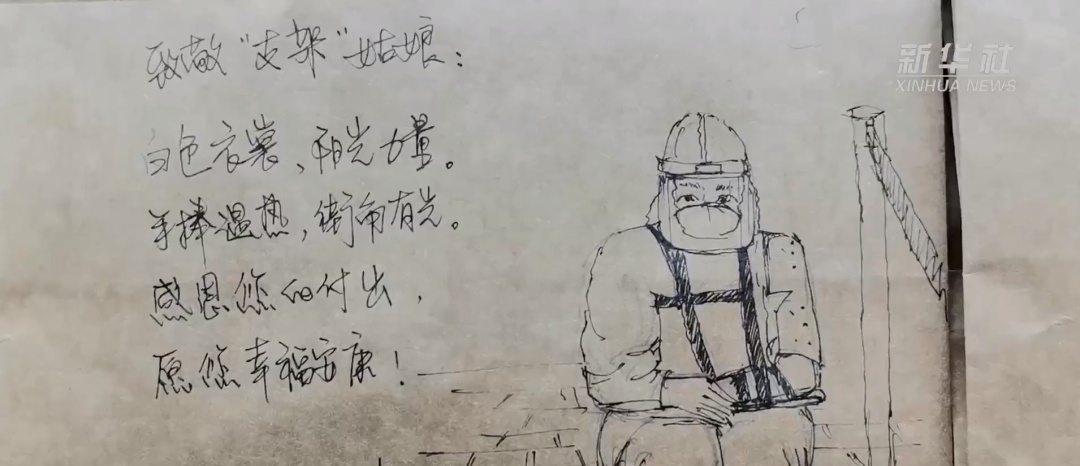 致敬“支架”姑娘：
白色衣裳，阳光力量。
手捧温热，衡布有光。
感恩您的付出，
愿您幸福安康！
新华社
XINHUA NEWS